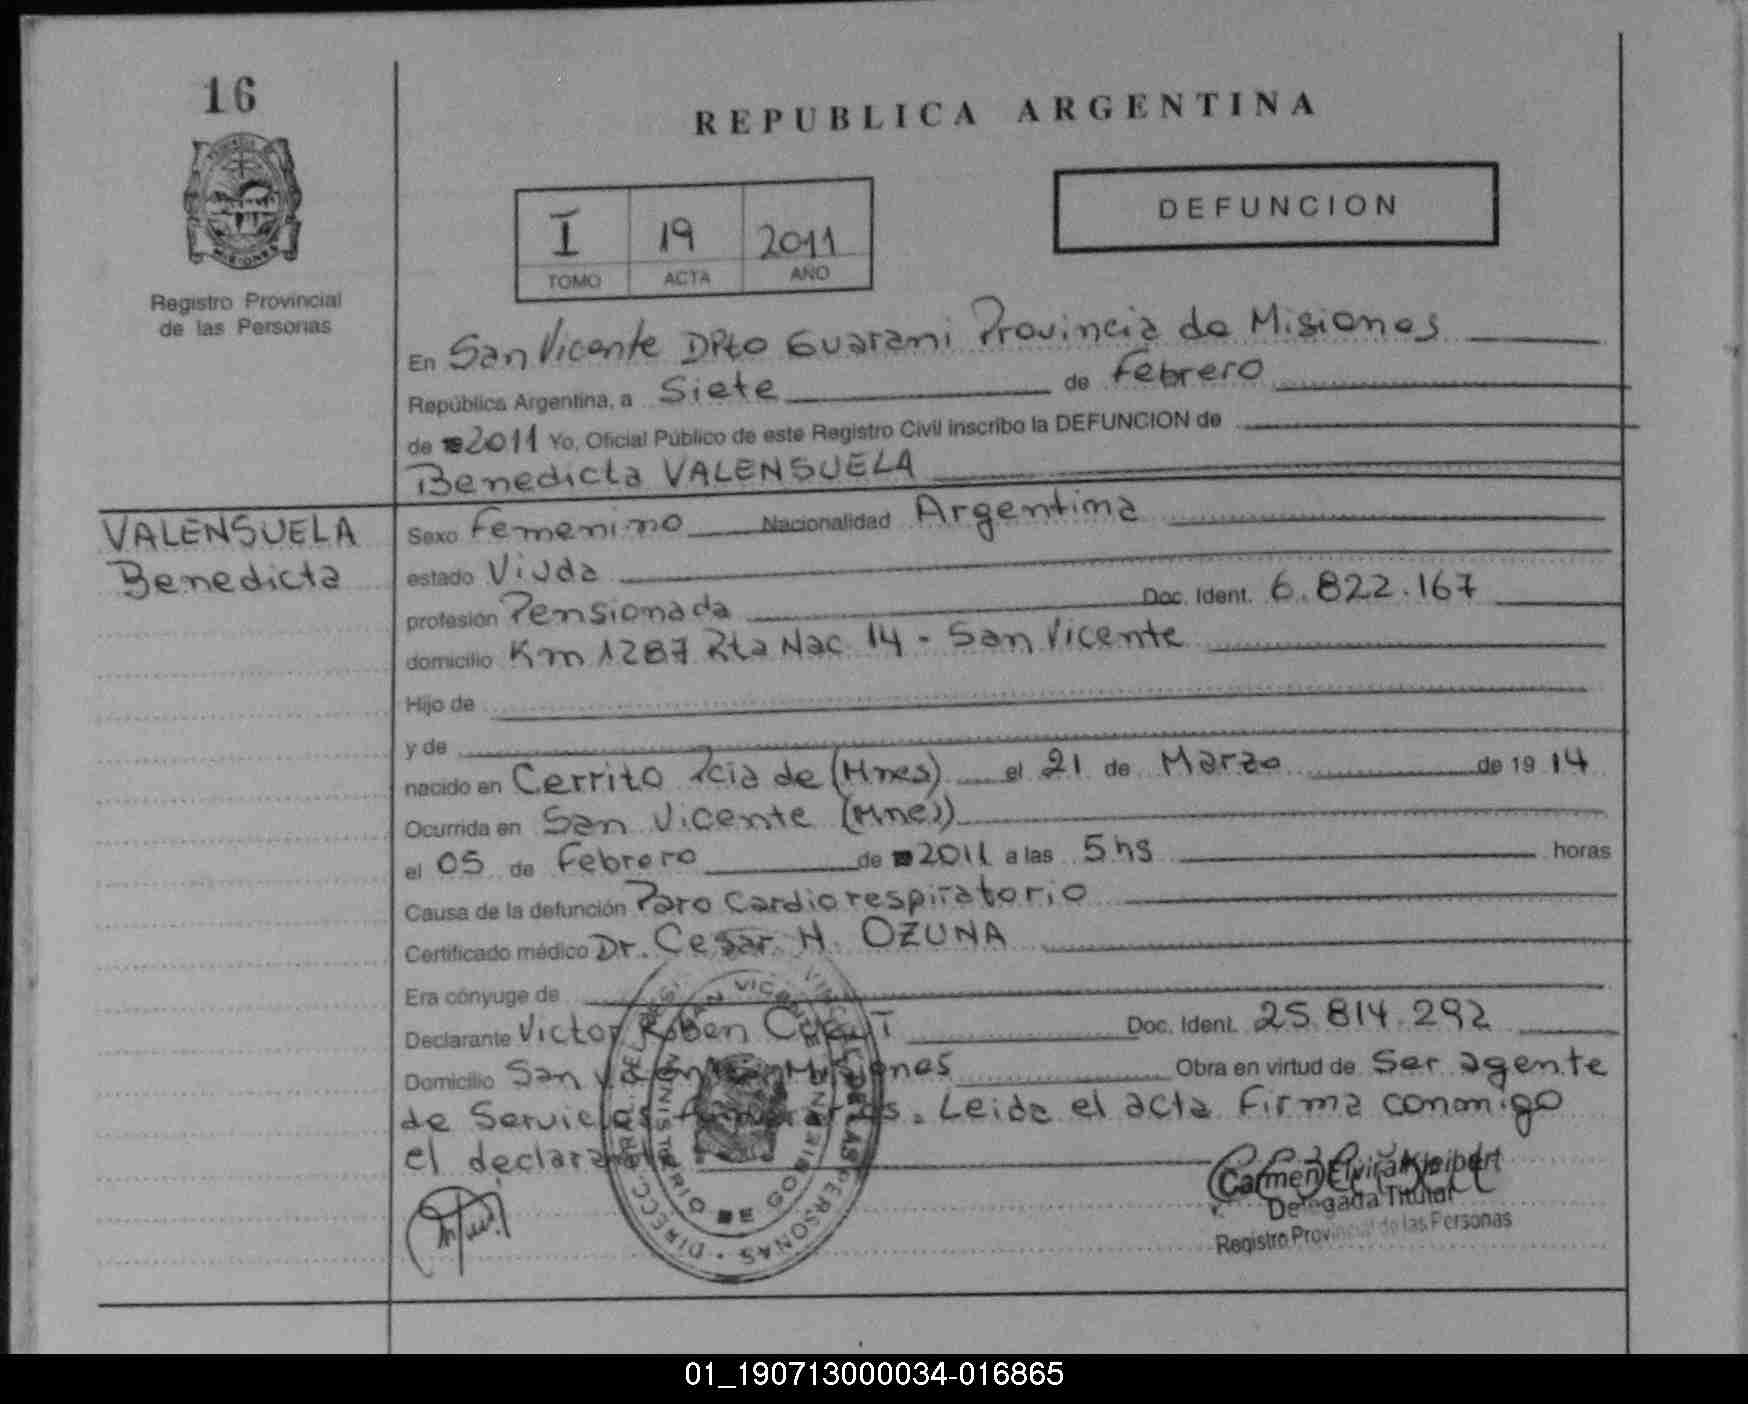 16
REPUBLICA ARGENTINA
MISIONES
Registro Provincial
de las Personas
I 19 2011
TOMO ACTA AÑO
DEFUNCION
En San Vicente DPto Guarani Provincia de Misiones
República Argentina, a Siete de Febrero
de 2011 Yo, Oficial Público de este Registro Civil inscribo la DEFUNCION de
Benedicta VALENSUELA
VALENSUELA
Benedicta
Sexo Femenino Nacionalidad Argentina
estado Viuda
profesión Pensionada Doc. Ident. 6.822.167
domicilio Km 1287 Rta Nac 14 - San Vicente
Hijo de
y de
nacido en Cerrito Pcia de (Mnes) el 21 de Marzo de 19 14
Ocurrida en San Vicente (Mnes)
el 05 de Febrero de 2011 a las 5 hs horas
Causa de la defunción Paro Cardiorespiratorio
Certificado médico Dr. Cesar H. OZUNA
Era cónyuge de
Declarante Victor Ruben Doc. Ident. 25.814.292
Domicilio San Vicente Misiones Obra en virtud de Ser agente
de Servicios . Leida el acta Firma conmigo
el declarante
Carmen Elvira Kleibert
Delegada Titular
Registro Provincial de las Personas
01_190713000034-016865